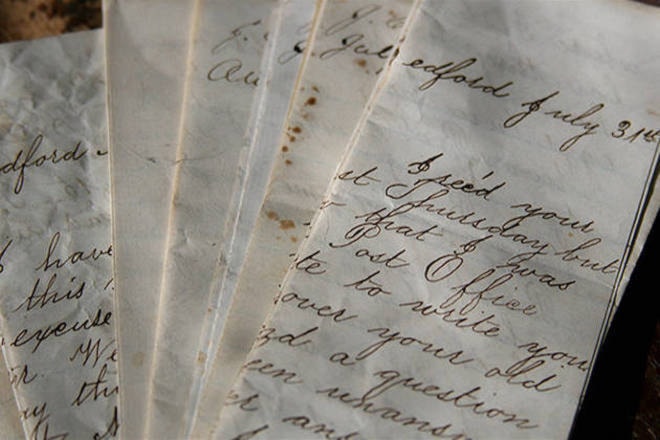 dford
I have
this
excuse
We
Au
Jul
edford July 31st
I rec'd your
st Thursday but
that I was
Post Office
te to write you
over your old
nd a question
een unansw